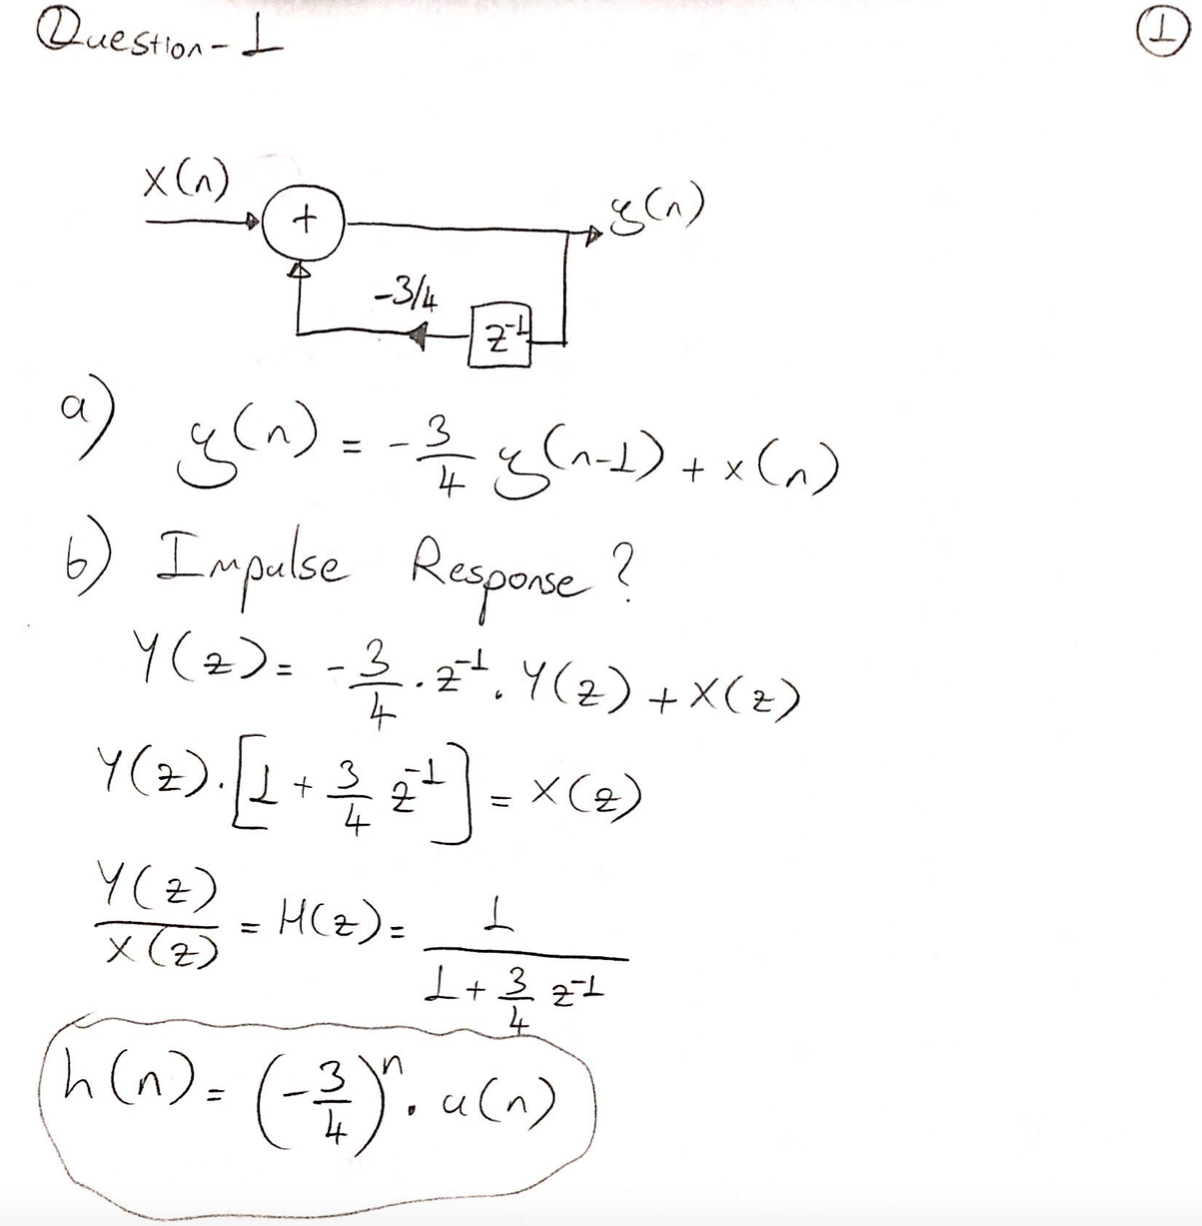 Question-1
①
x(n)
+
y(n)
-3/4
z⁻¹
a) y(n) = -3/4 y(n-1) + x(n)
b) Impulse Response ?
Y(z) = -3/4 . z⁻¹ . Y(z) + X(z)
Y(z) . [1 + 3/4 z⁻¹] = X(z)
Y(z)/X(z) = H(z) = 1/(1 + 3/4 z⁻¹)
h(n) = (-3/4)ⁿ . u(n)